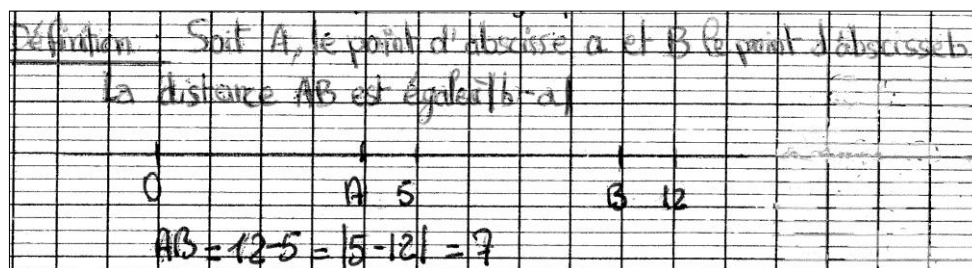 Définition : Soit A, le point d'abscisse a et B le point d'abscisse b.
La distance AB est égale à |b-a|
O A 5 B 12
AB = 12-5 = |5-12| = 7